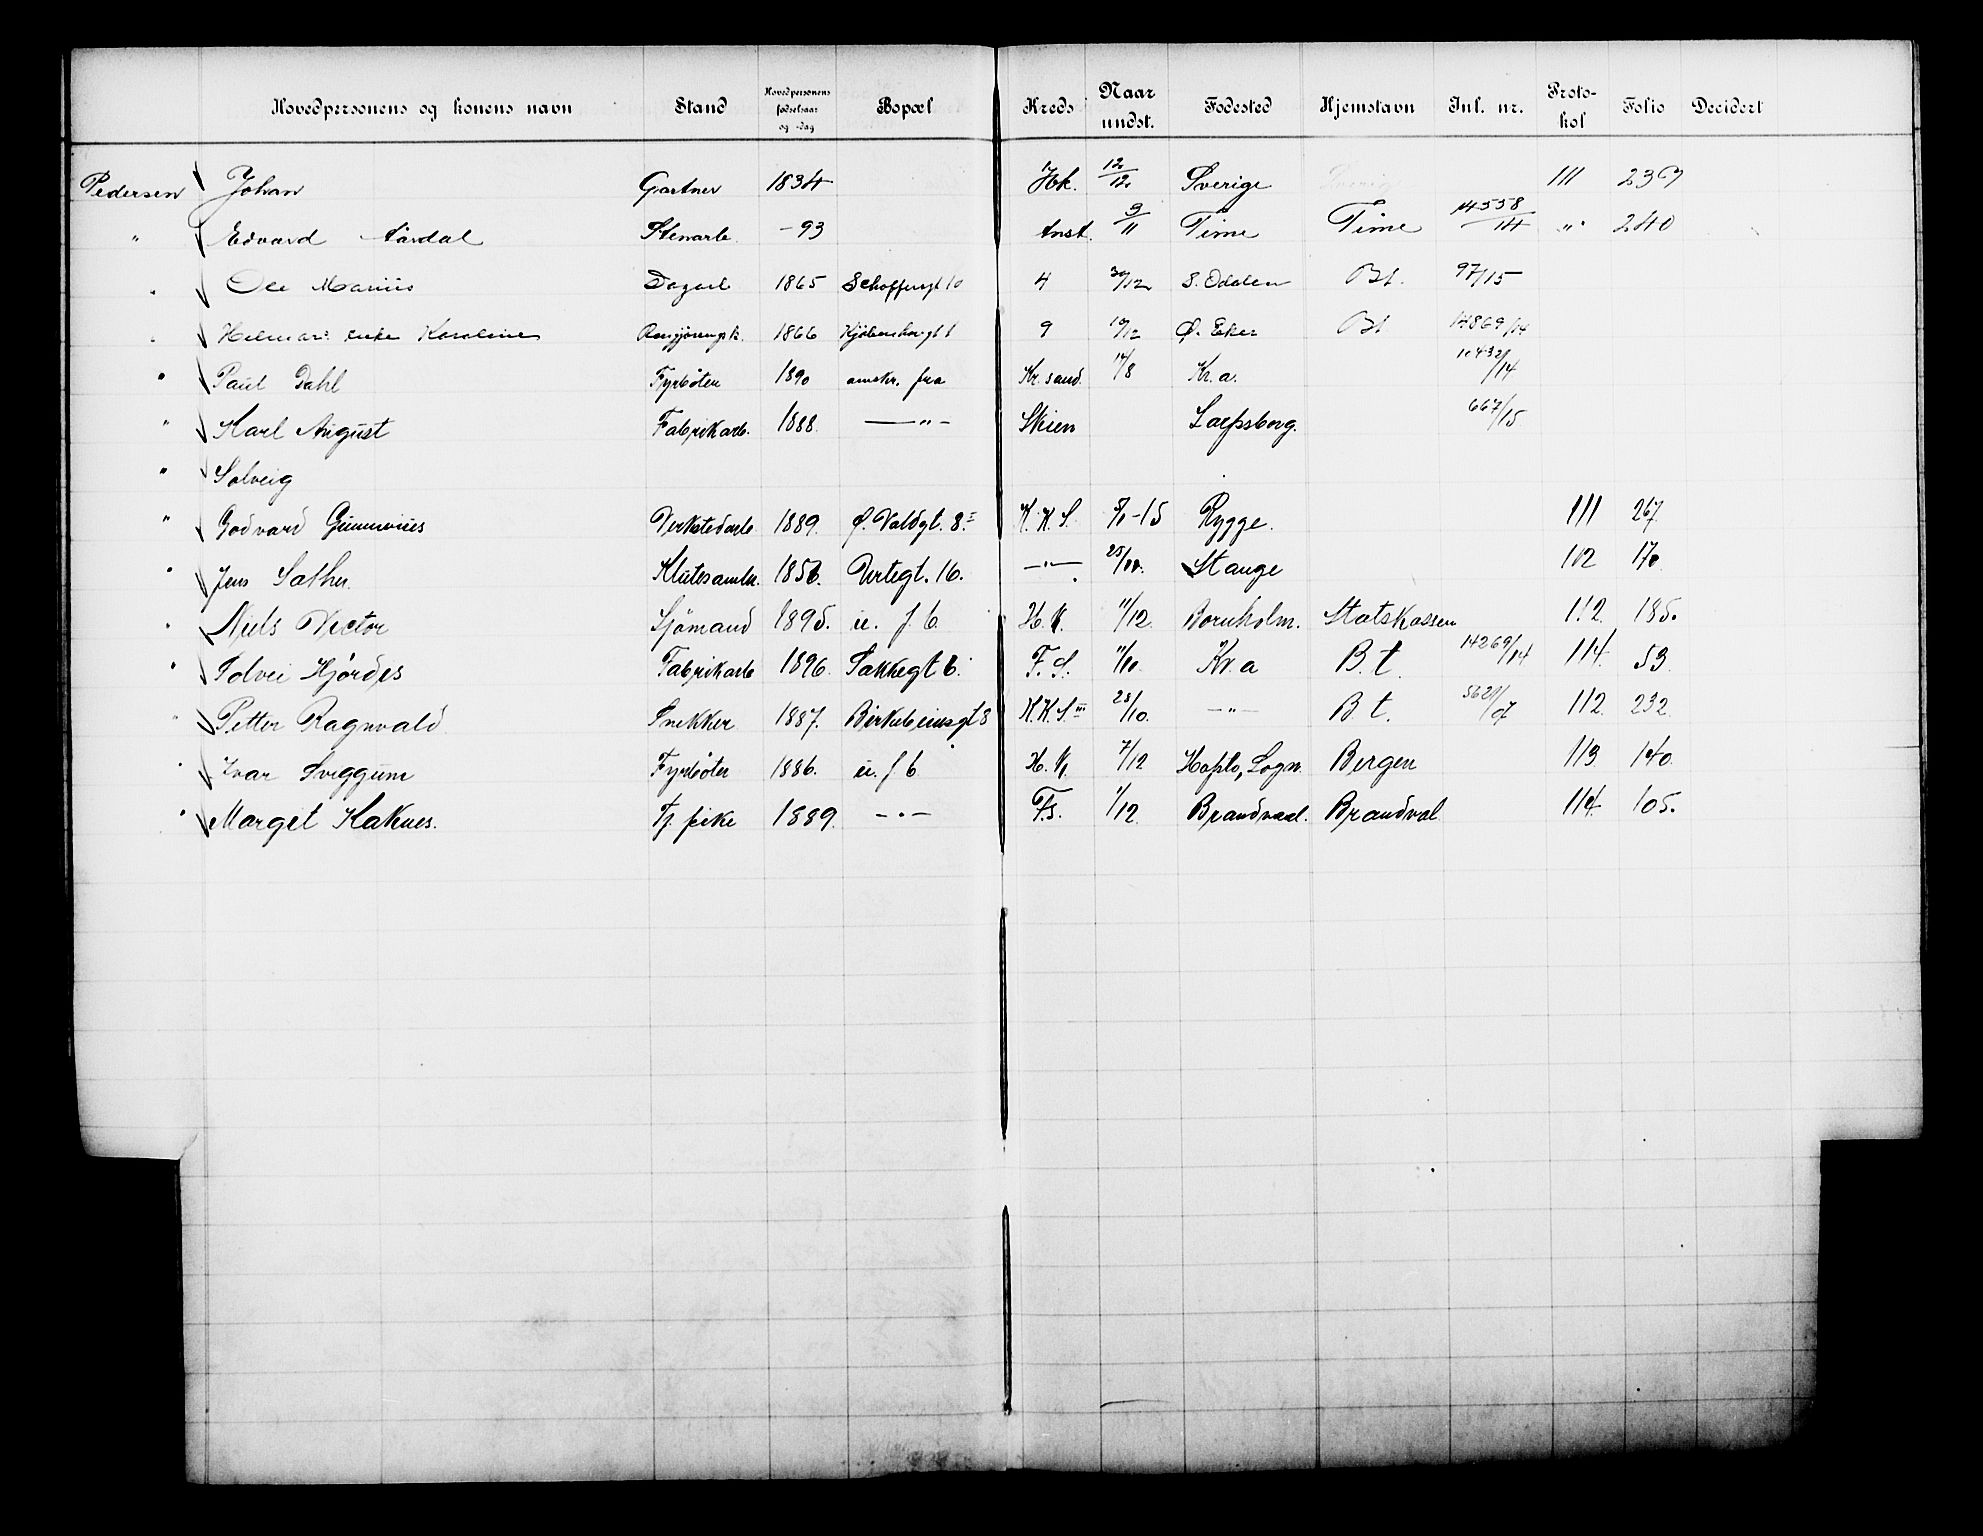 Hovedpersonens og konens navn Stand Hovedpersonens fødselsaar og -dag Bopæl Kreds Naar undst. Fødested Hjemstavn Inl. nr. Protokol Folio Decidert
Pedersen Johan Gartner 1834 Hk. 12/12 Sverige 111 239
" Edvard Aardal Stenarb. -93 Anst. 3/11 Time Time 14558/14 " 240
" Ole Marius Dagarb 1865 4 30/12 S. Odalen Bt. 97/15
" Hilmar enke Karoline 1866 9 10/12 Ø. Eker Bt 14869/14
" Paul Dahl Fyrbøter 1890 anskr. fra Kr.sand. 14/8 Kr.a. 10432/14
" Karl August Fabrikarb. 1888. —"— Skien 667/15
" Solveig
" Godvard Verkstedarb. 1889. K.K.S. -15 Rygge. 111 267
" Jens Sather. Klutesamler. 1856. Vertegt. 16. —"— 25/11. Stange 112 170
" Niels Victor Sjömand 1895. u. f b H.K. 11/12. Bornholm. Statskassen 112. 185.
" Solvei Hjördis Fabrikarb 1896. Sakkegt 6. F.S. 11/10. Kr.a B.t. 14269/14 114. 53.
" Petter Ragnvald Snekker 1887. Birkebeinergt 8 K.K.S. 28/10. —"— B t. 5621/07 112. 232.
" Ivar Sviggum Fyrböter 1886. u. f b H.K. 7/12 Haflo, Sogn. Bergen 113. 140.
" Marget Kaknes. Tj. pike 1889. —"— F.S. 1/12. Brandvaal. Brandval 114. 105.